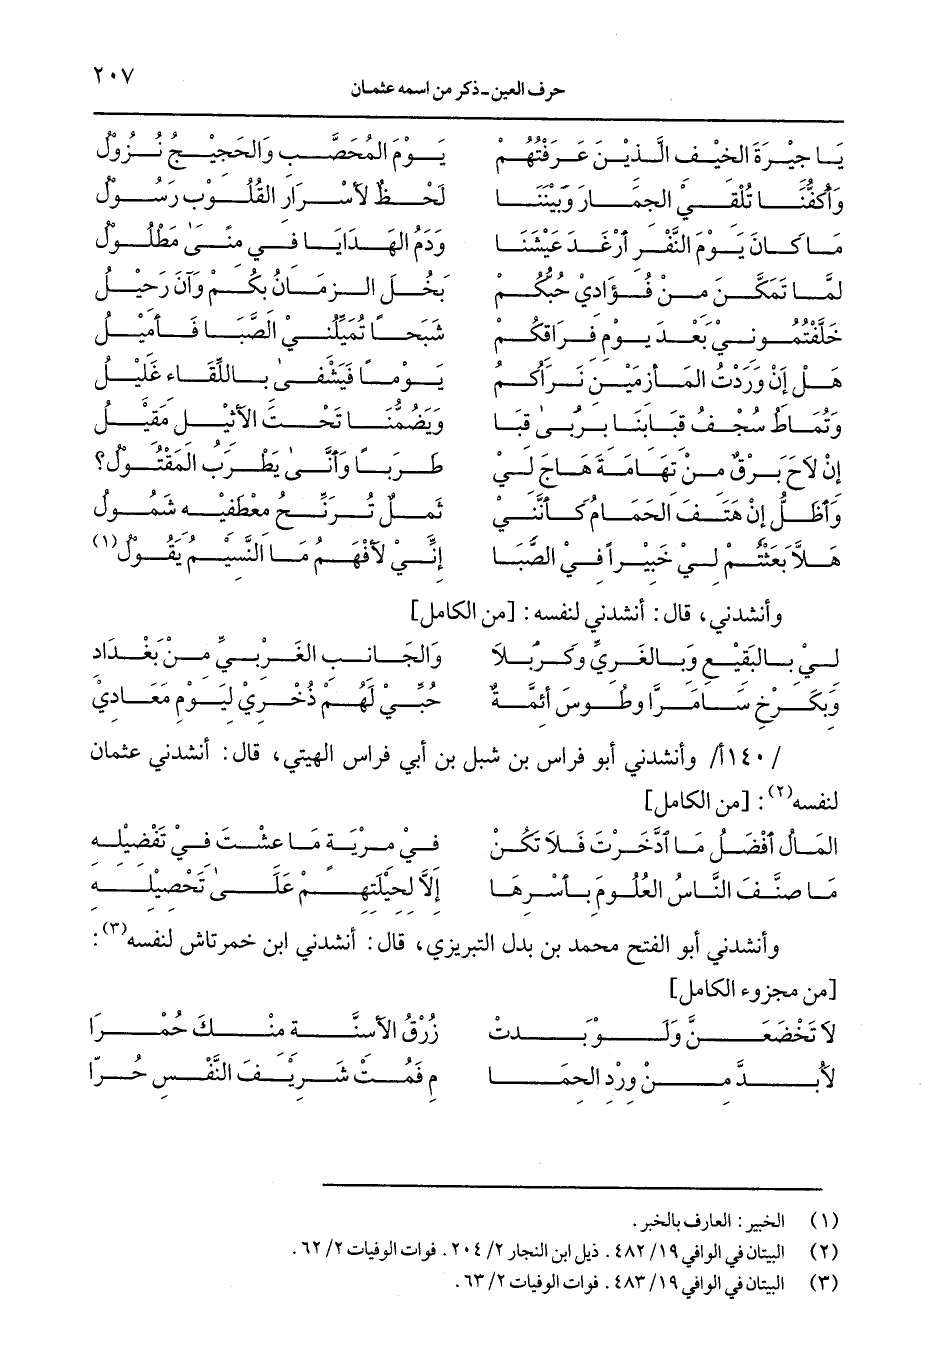 ٢٠٧
حرف العين - ذكر من اسمه عثمان
يَا جِيْرَةَ الخَيْفِ الَّذِيْنَ عَرَفْتُهُمْ يَوْمَ المُحَصَّبِ وَالحَجِيْجُ نُزُوْلُ
وَأَكُفُّنَا تُلْقِيْ الجِمَارَ وَبَيْنَنَا لَحْظٌ لأَسْرَارِ القُلُوْبِ رَسُوْلُ
مَا كَانَ يَوْمَ النَّفْرِ أَرْغَدَ عَيْشَنَا وَدَمُ الهَدَايَا فِي مِنًى مَطْلُوْلُ
لَمَّا تَمَكَّنَ مِنْ فُؤَادِيْ حُبُّكُمْ بَخُلَ الزَمَانُ بِكُمْ وَآنَ رَحِيْلُ
خَلَّفْتُمُوْنِيْ بَعْدَ يَوْمِ فِرَاقِكُمْ شَبَحاً تُمَيِّلُنِيْ الصَّبَا فَأَمِيْلُ
هَلْ إِنْ وَرَدْتُ المَأْزِمَيْنِ نَرَاكُمُ يَوْماً فَيَشْفَى بِاللِّقَاءِ غَلِيْلُ
وَتُمَاطُ سُجْفُ قِبَابِنَا بِرُبَى قِبَا وَيَضُمُّنَا تَحْتَ الأَثِيْلِ مَقِيْلُ
إِنْ لاَحَ بَرْقٌ مِنْ تِهَامَةَ هَاجَ لِيْ طَرَباً وَأَنَّى يَطْرَبُ المَقْتُوْلُ؟
وَأَظَلُّ إِنْ هَتَفَ الحَمَامُ كَأَنَّنِيْ ثَمِلٌ تُرَنِّحُ مِعْطَفَيْهِ شَمُوْلُ
هَلاَّ بَعَثْتُمْ لِيْ خَبِيْراً فِيْ الصَّبَا إِنِّيْ لأَفْهَمُ مَا النَّسِيْمُ يَقُوْلُ(١)
وأنشدني، قال: أنشدني لنفسه: [من الكامل]
لِيْ بِالبَقِيْعِ وَبِالغَرِيِّ وَكَرْبُلاَ وَالجَانِبِ الغَرْبِيِّ مِنْ بَغْدَادِ
وَبِكَرْخِ سَامَرَّا وطُوْسَ أَئِمَّةٌ حُبِّيْ لَهُمْ ذُخْرِيْ لِيَوْمِ مَعَادِيْ
/١٤٠أ/ وأنشدني أبو فراس بن شبل بن أبي فراس الهيتي، قال: أنشدني عثمان
لنفسه(٢): [من الكامل]
المَالُ أَفْضَلُ مَا ادَّخَرْتَ فَلاَ تَكُنْ فِيْ مِرْيَةٍ مَا عِشْتَ فِيْ تَفْضِيْلِهِ
مَا صَنَّفَ النَّاسُ العُلُوْمَ بِأَسْرِهَا إِلاَّ لِحِيْلَتِهِمْ عَلَى تَحْصِيْلِهِ
وأنشدني أبو الفتح محمد بن بدل التبريزي، قال: أنشدني ابن خمرتاش لنفسه(٣):
[من مجزوء الكامل]
لاَ تَخْضَعَنَّ وَلَوْ بَدَتْ زُرْقُ الأَسِنَّةِ مِنْكَ حُمْرَا
لاَبُدَّ مِنْ وِرْدِ الحِمَا مِ فَمُتْ شَرِيْفَ النَّفْسِ حُرّا
(١) الخبير: العارف بالخبر.
(٢) البيتان في الوافي ١٩/ ٤٨٢. ذيل ابن النجار ٢/ ٢٠٤. فوات الوفيات ٢/ ٦٢.
(٣) البيتان في الوافي ١٩/ ٤٨٣. فوات الوفيات ٢/ ٦٣.